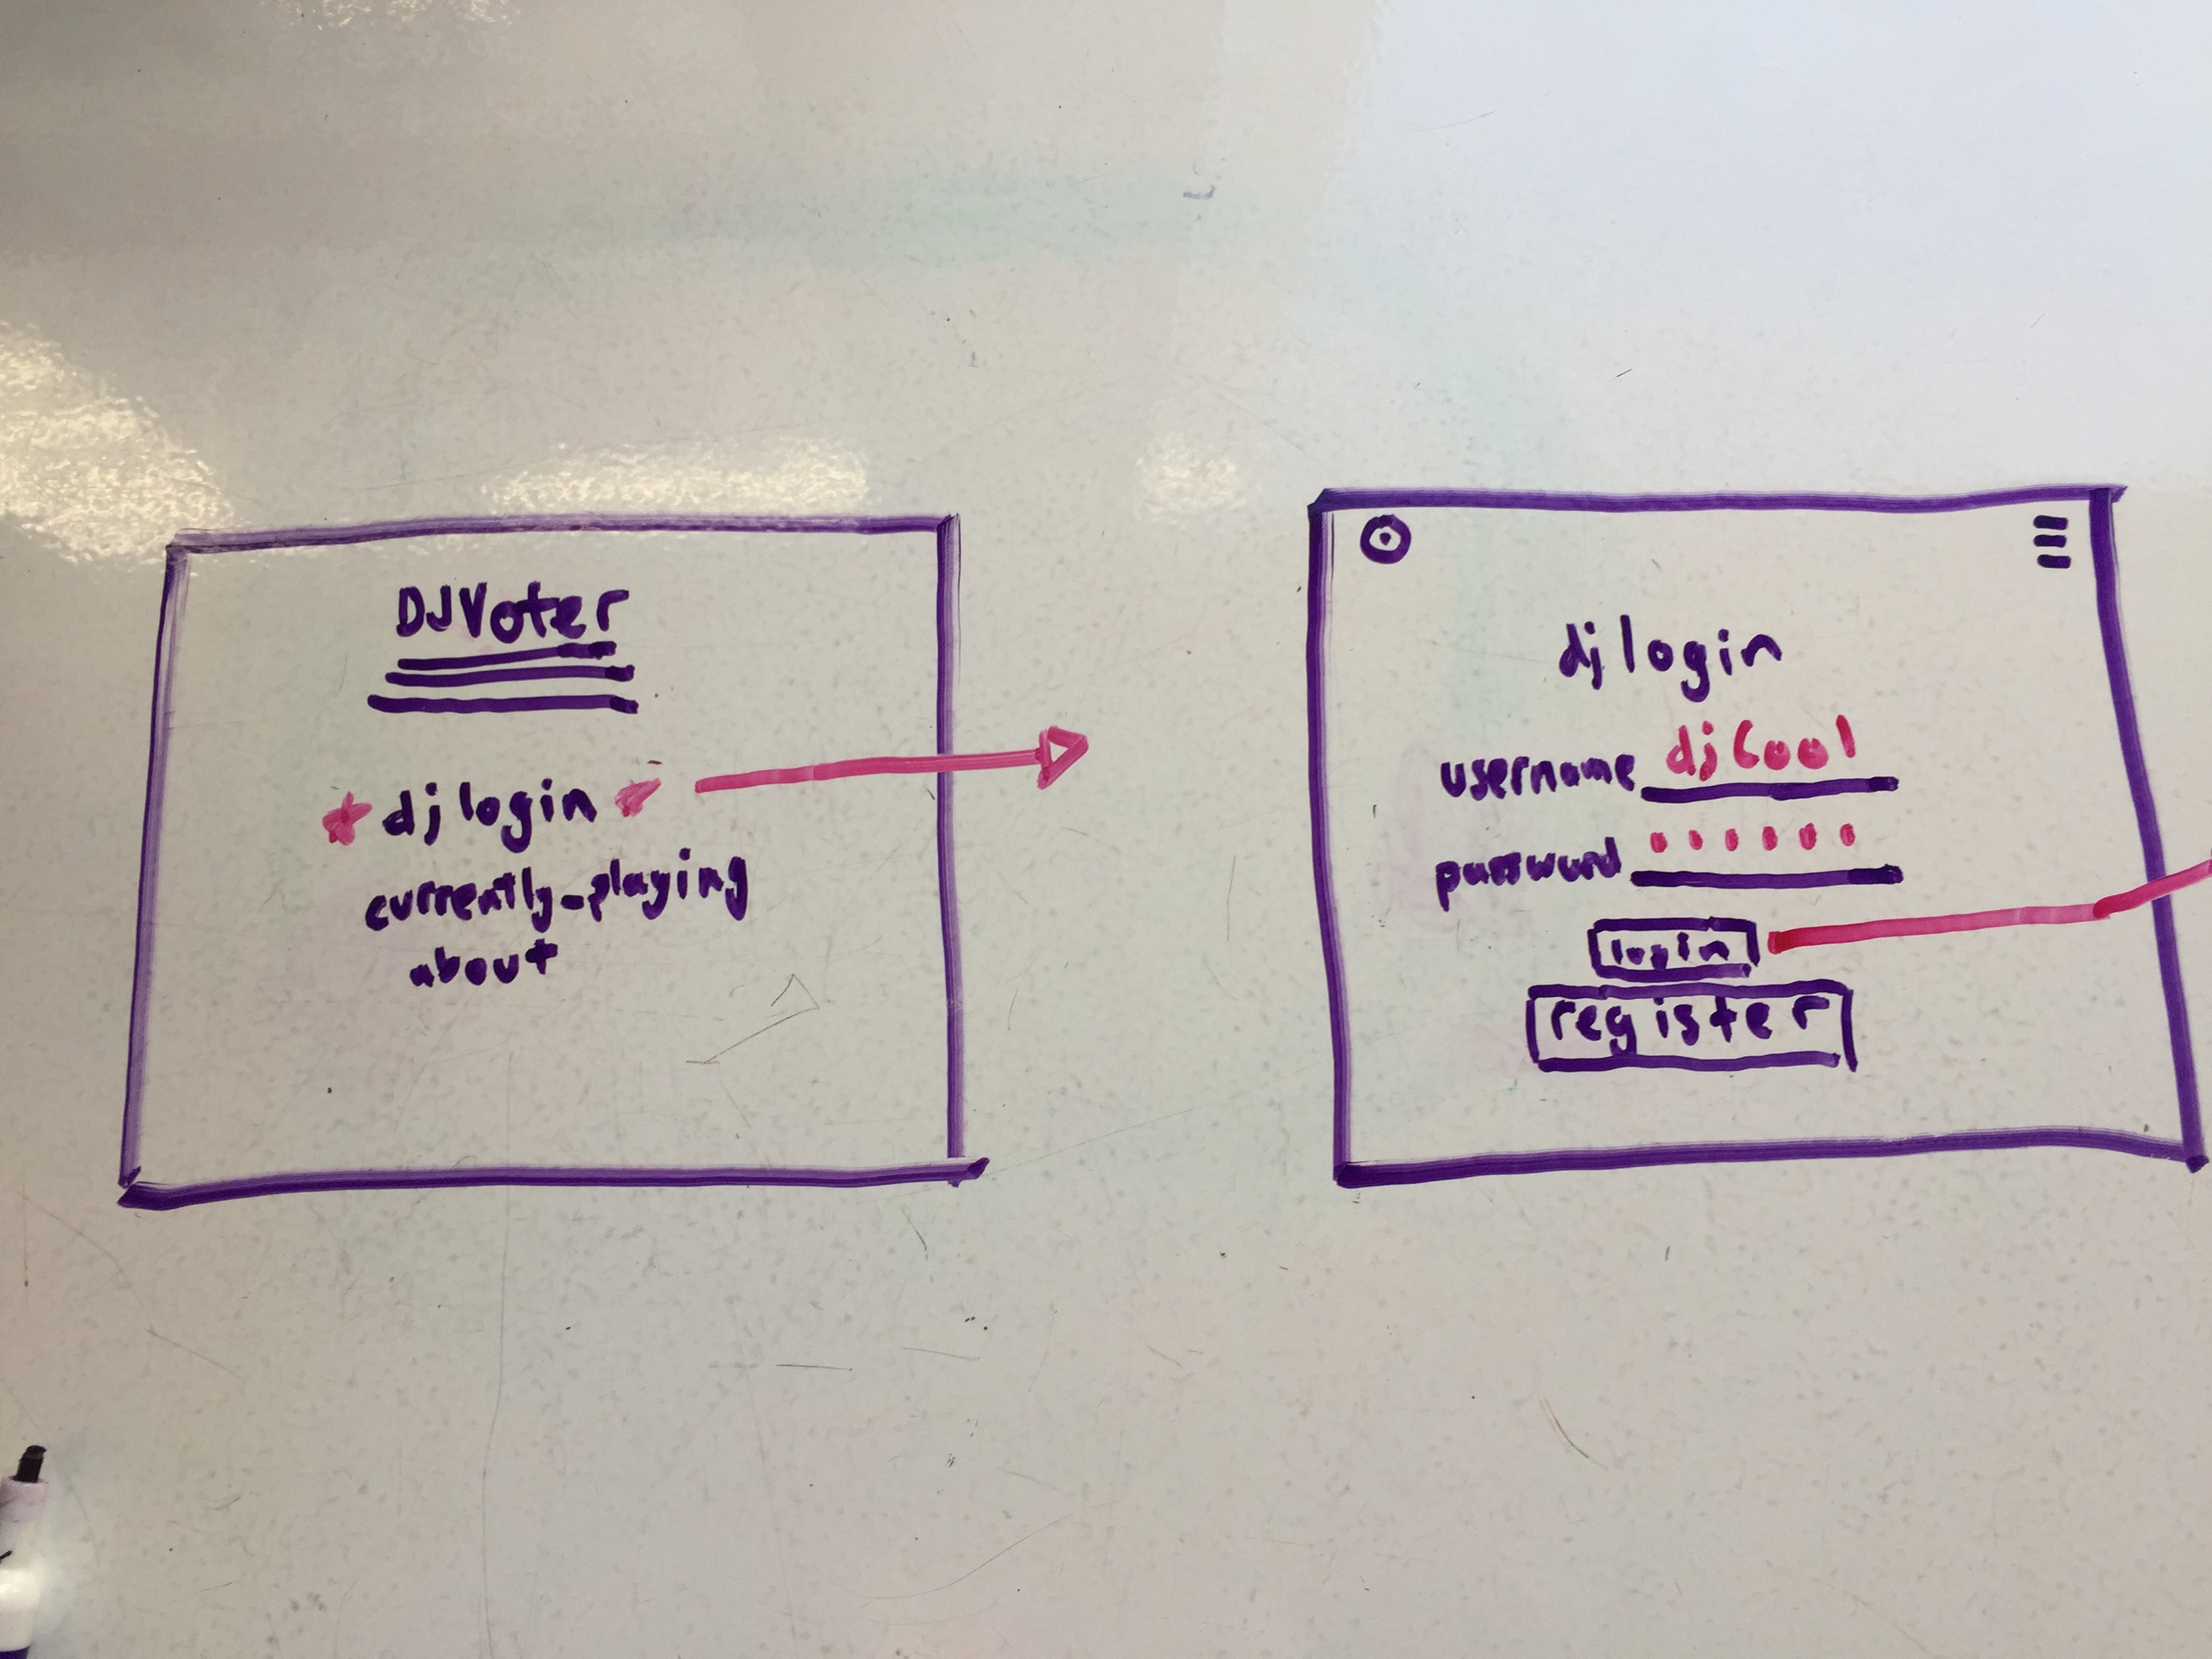 DJVoter
dj login
currently-playing
about
dj login
username djCool
password ••••••
login
register